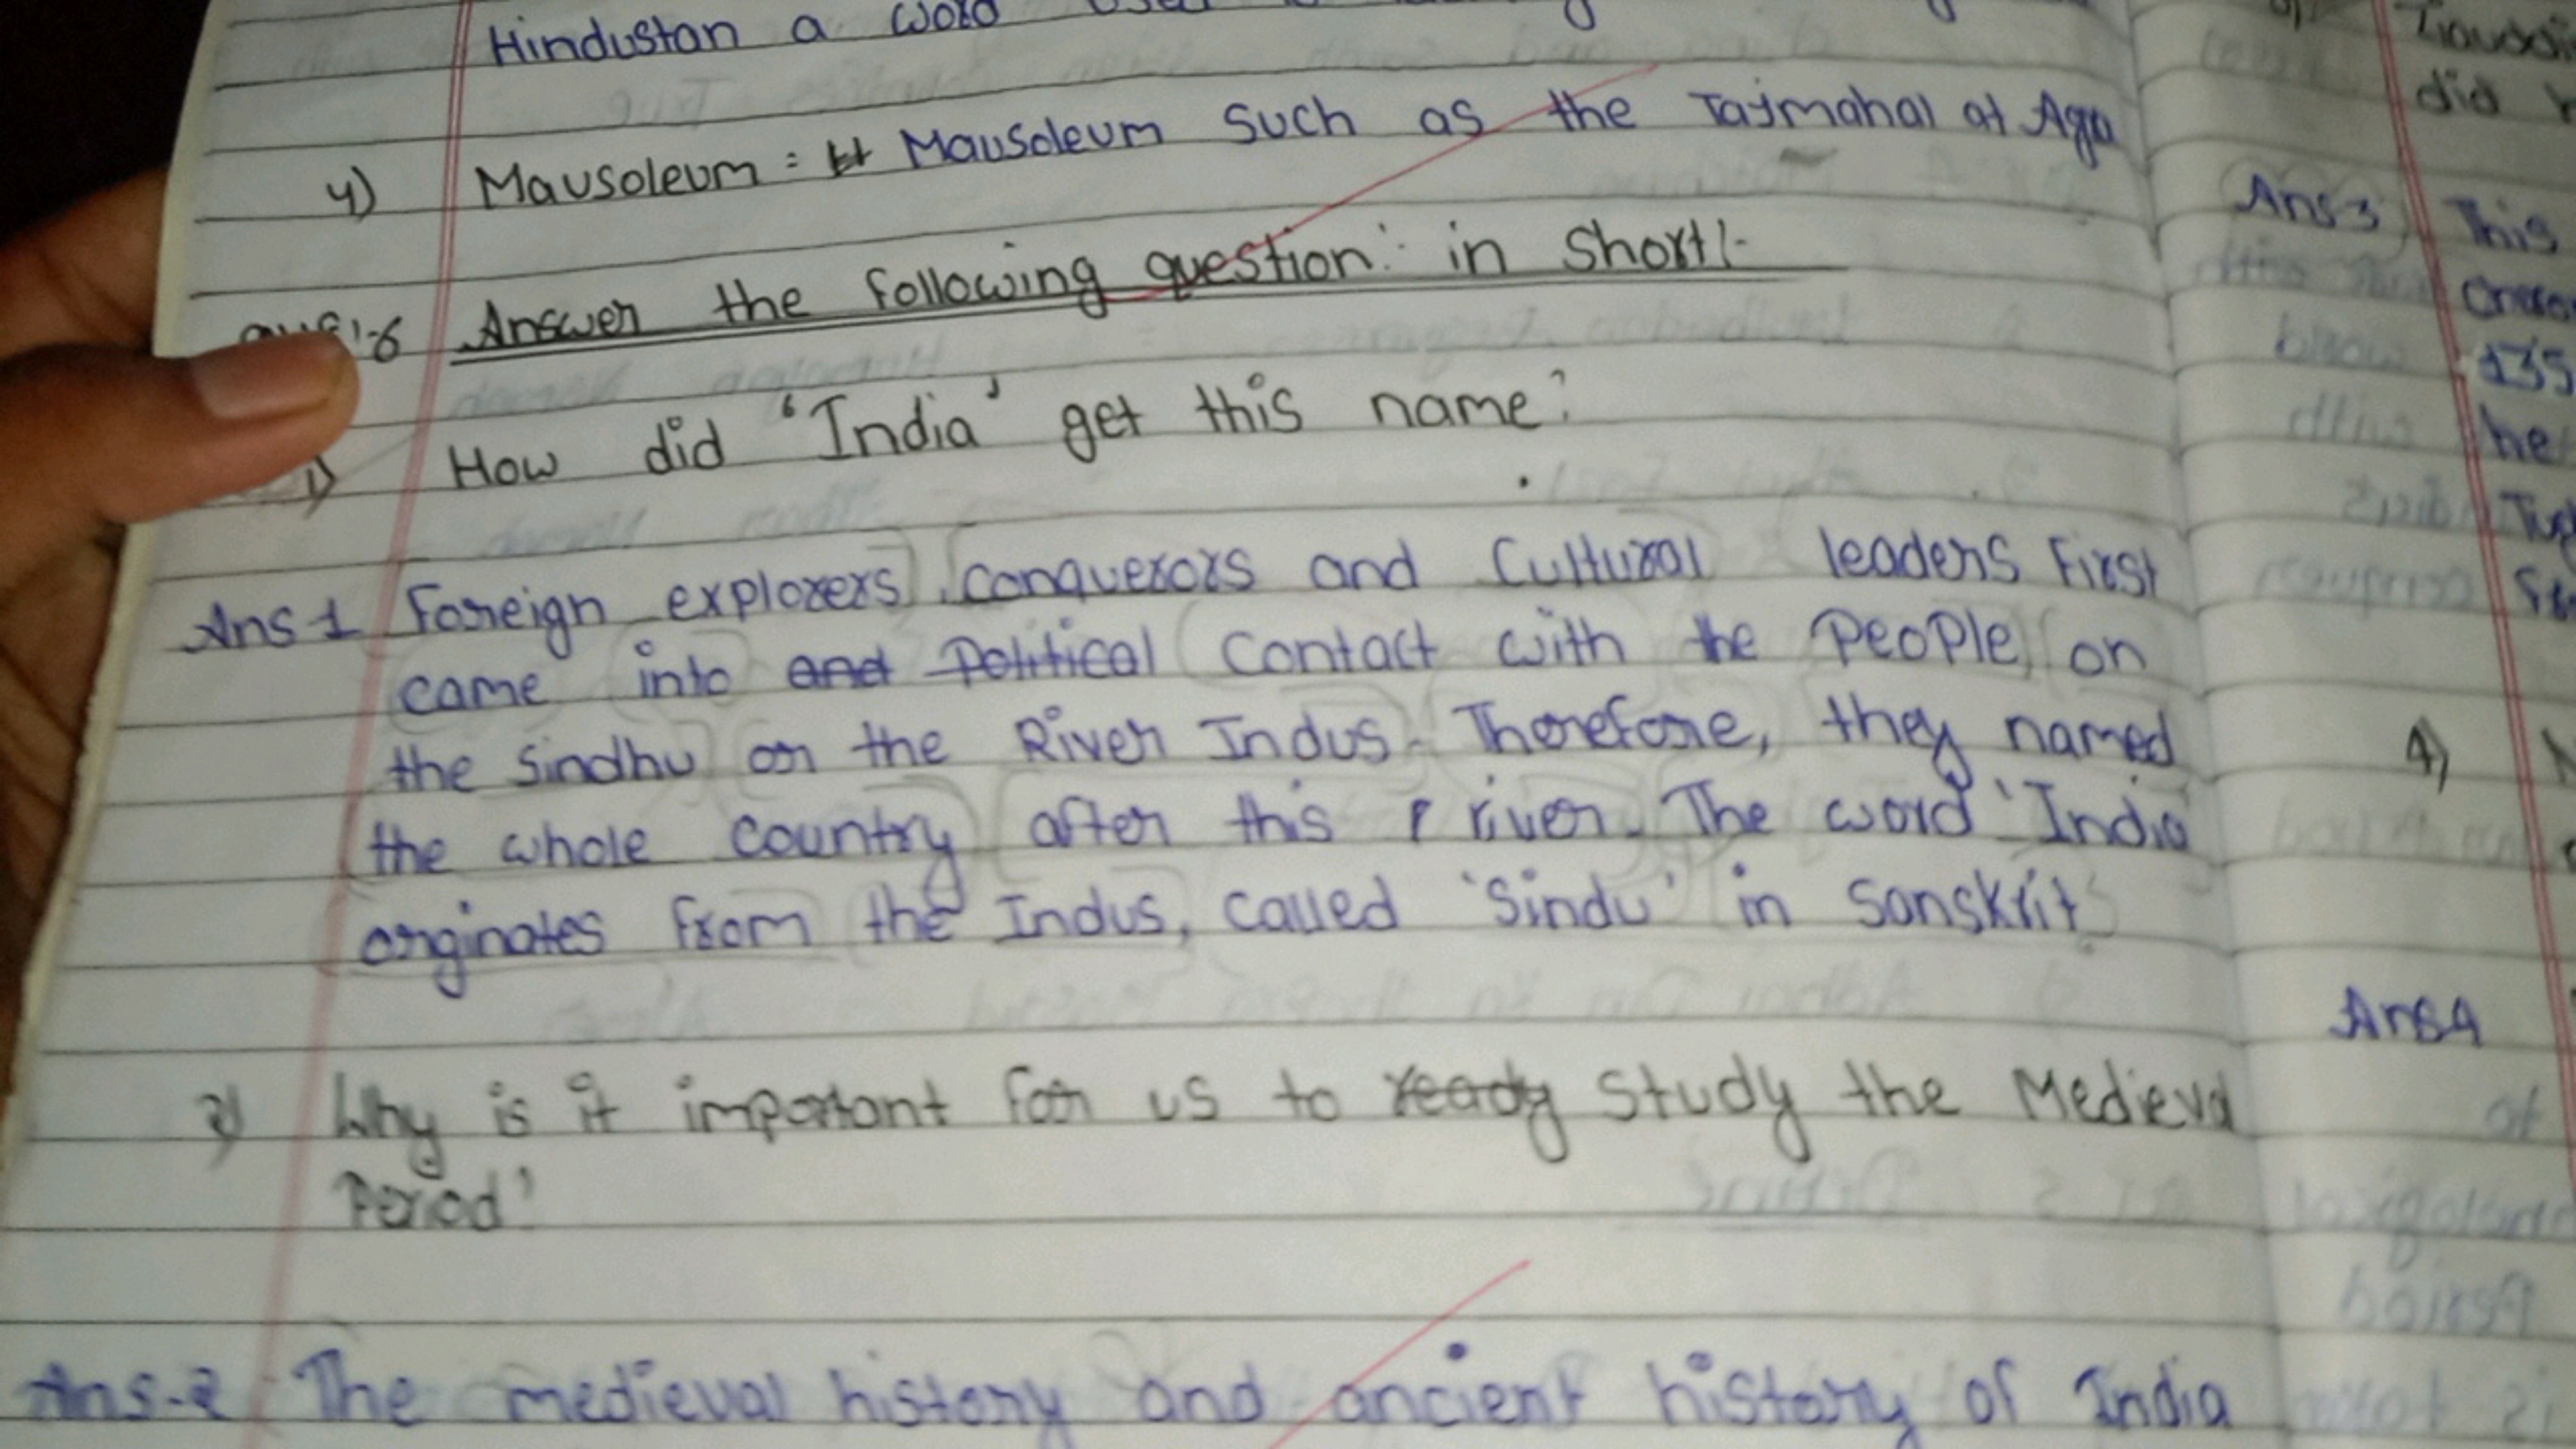 Hindustan a word
4) Mausoleum : Mausoleum such as the Tajmahal at Aga
6 Answer the following question: in short:-
1) How did 'India' get this name?
Ans 1 Foreign explorers, conquerors and Cultural leaders first
came into and Political Contact with the People on
the Sindhu or the River Indus. Therefore, they named
the whole Country after this r river. The word 'India
orginates from the Indus, called 'Sindu' in Sanskrit.
2) Why is it important for us to ready Study the Medieval
Period?
Ans-2 The medieval history and ancient history of India
did
Ans3 This
135
he
4)
Ans4